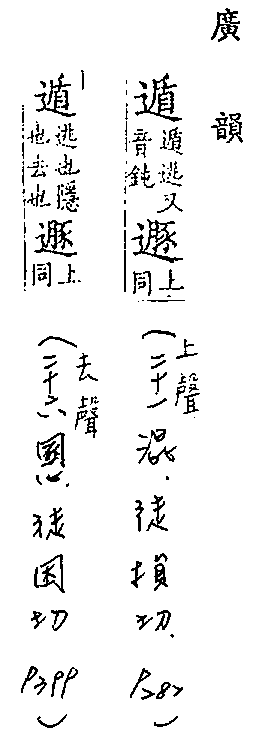 廣韻
遁遁逃又音鈍遯上同(上聲二十一混.徒損切.P282)
遁逃也隱也去也遯上同(去聲二十六慁.徒困切P399)